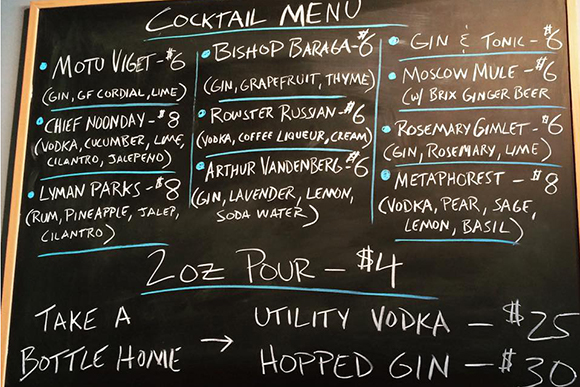 COCKTAIL MENU
MOTU VIGET - $6
(GIN, GF CORDIAL, LIME)
CHIEF NOONDAY - $8
(VODKA, CUCUMBER, LIME,
CILANTRO, JALEPENO)
LYMAN PARKS - $8
(RUM, PINEAPPLE, JALEP,
CILANTRO)
BISHOP BARAGA - $6
(GIN, GRAPEFRUIT, THYME)
ROWSTER RUSSIAN - $6
(VODKA, COFFEE LIQUEUR, CREAM)
ARTHUR VANDENBERG - $6
(GIN, LAVENDER, LEMON,
SODA WATER)
GIN & TONIC - $6
MOSCOW MULE - $6
(W/ BRIX GINGER BEER
ROSEMARY GIMLET - $6
(GIN, ROSEMARY, LIME)
METAPHOREST - $8
(VODKA, PEAR, SAGE,
LEMON, BASIL)
2OZ POUR - $4
TAKE A
BOTTLE HOME →
UTILITY VODKA - $25
HOPPED GIN - $30